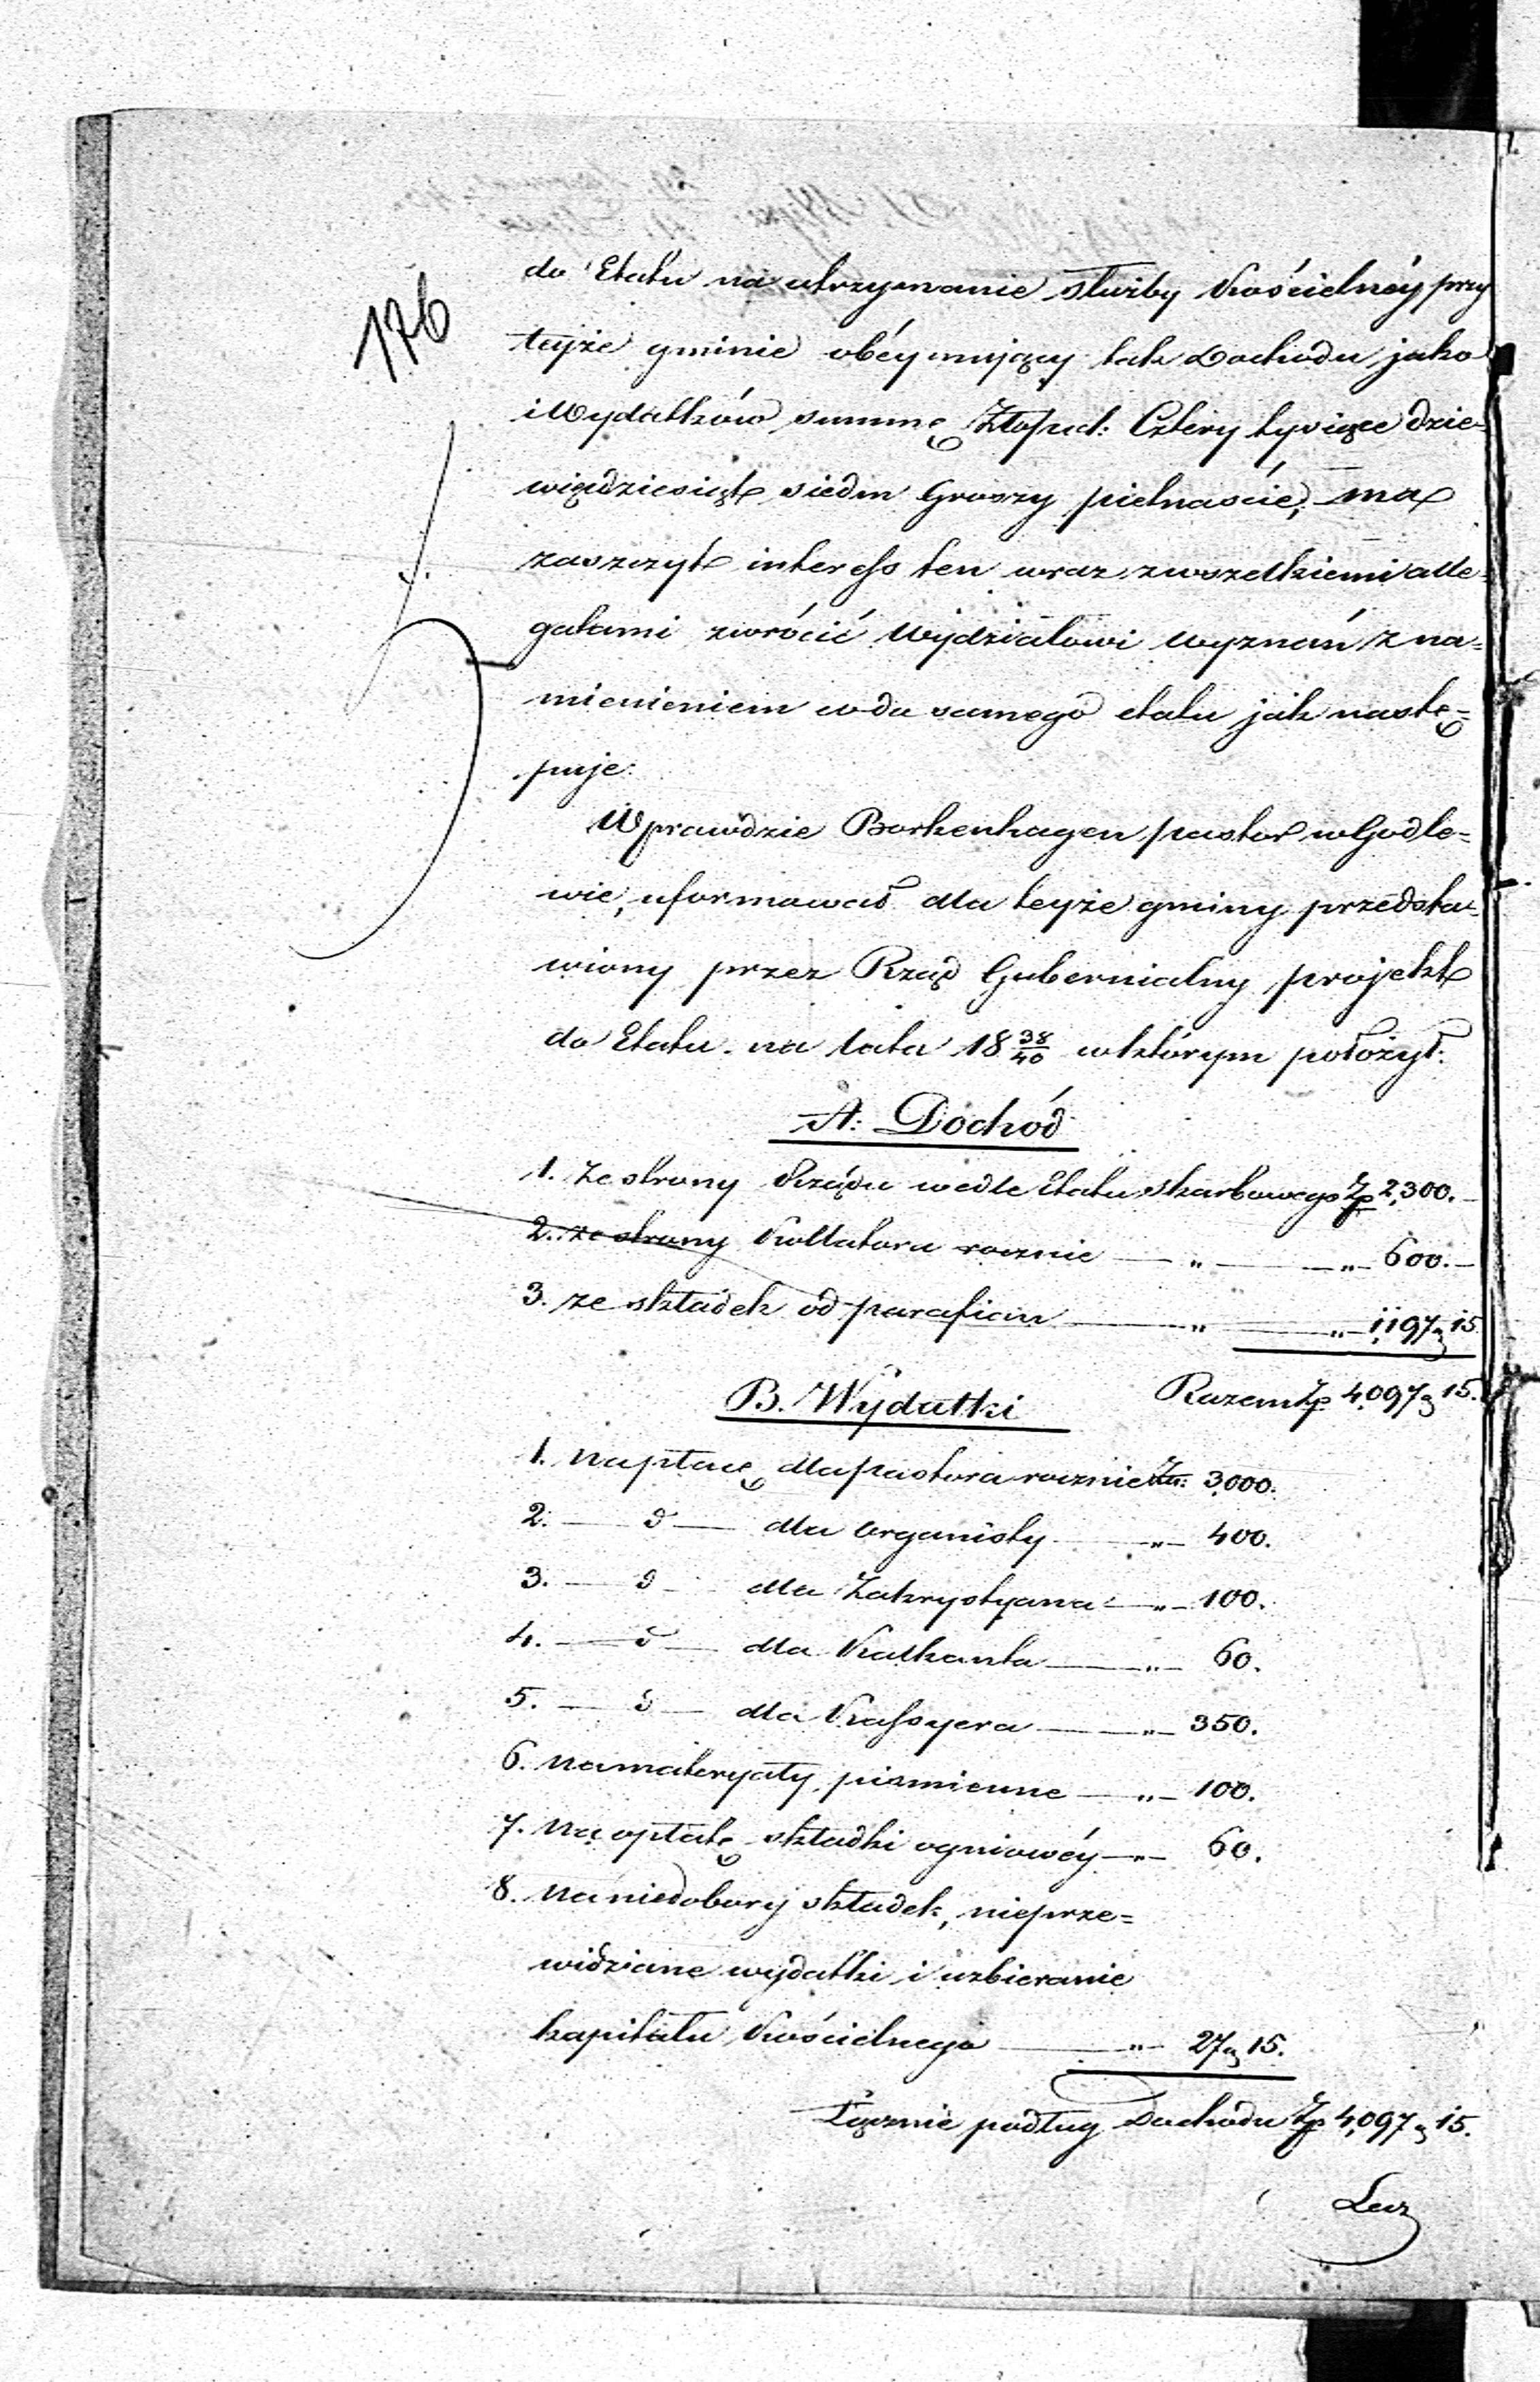 176
do Etatu na utrzymanie służby Kościelnéy przy
teyże gminie obéymujący tak Dochodu jako
i Wydatków summę Złopol: Cztery tysiące dzie=
więdziesiąt siedm Groszy pietnaście, ma
zaszczyt interess ten wraz z wszelkiemi alle=
gatami zwrócić Wydziałowi Wyznań z na=
mienieniem co do samego etatu jak nastę=
puje:
Wprawdzie Borkenhagen pastor w Godle=
wie, uformował dla teyże gminy przedsta=
wiony przez Rząd Gubernialny projekt
do Etatu na lata 18 38/40 w którym położył:
A: Dochód
1. Ze strony Rządu wedle Etatu skarbowego Zp 2,300.—
2. ze strony Kollatora rocznie — „ — „ — 600.—
3. ze składek od parafian — „ — „ — 1,197 g 15
Razem Zp 4,097 g 15.
B. Wydatki
1. na płacę dla pastora rocznie Zp: 3,000.
2. — d — dla Organisty — „ — 400.
3. — d — dla Zakrystyana — „ — 100.
4. — d — dla Kalkanta — „ — 60.
5. — d — dla Kassyera — „ — 350.
6. na materyały piśmienne — „ — 100.
7. na opłatę składki ogniowéy — „ — 60.
8. na niedobory składek, nieprze=
widziane wydatki i uzbieranie
kapitału Kościelnego — „ — 27 g 15.
Łącznie podług Dochodu Zp 4,097 g 15.
Lecz